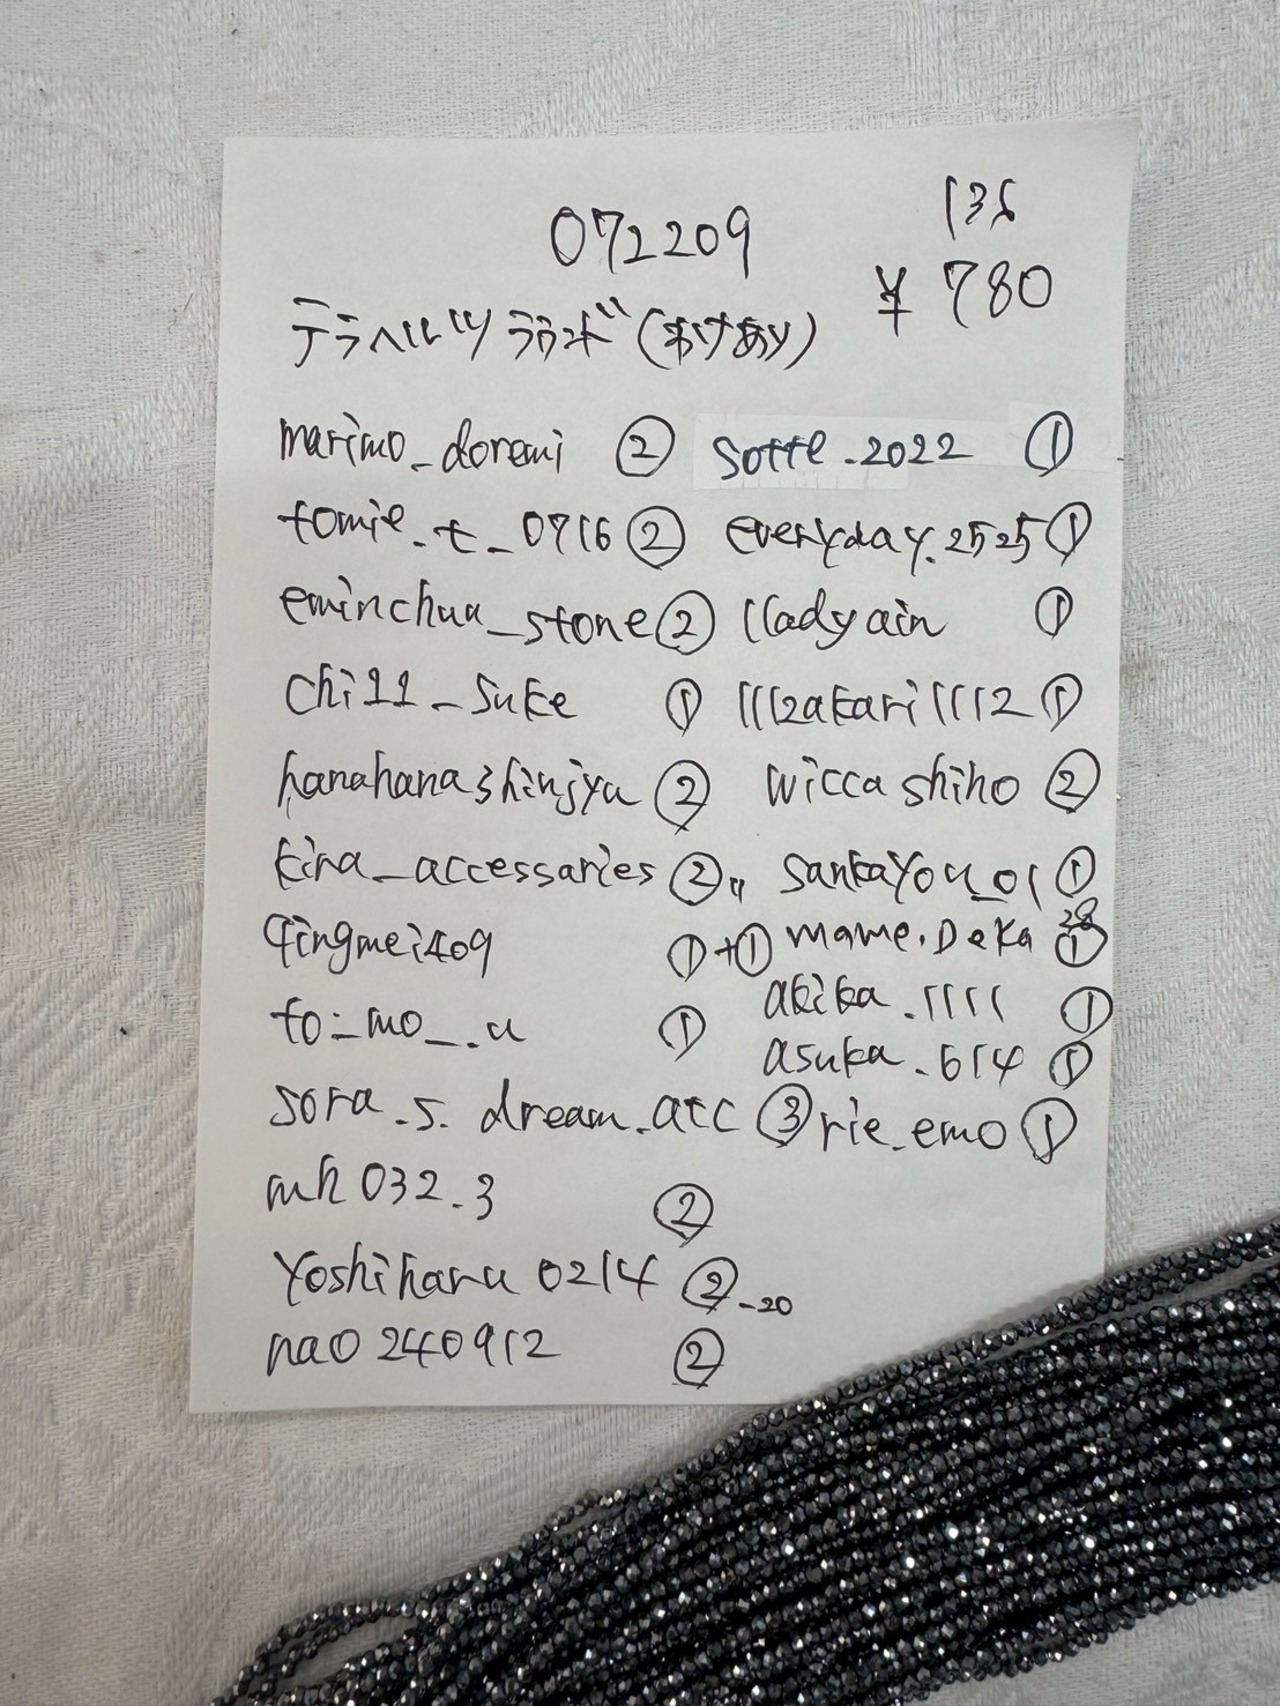 072209
136
¥780
テラヘルツ ラウンド (わけあり)
marimo_doremi ② sotte.2022 ①
tomie_t_0716 ② everyday.2525 ①
eminchuu_stone ② lladyain ①
chi11_suke ① 1112akari11112 ①
hanahanashinjyu ② wiccashiho ②
kira_accessaries ② sankayou_01 ①
qingmei409 ①+① mame.Deka28 ①
to_mo__.u ① akika.1111 ①
asuka.614 ①
sora.s.dream.acc ③ rie_emo ①
mh032.3 ②
Yoshiharu0214 ②-20
nao240912 ②